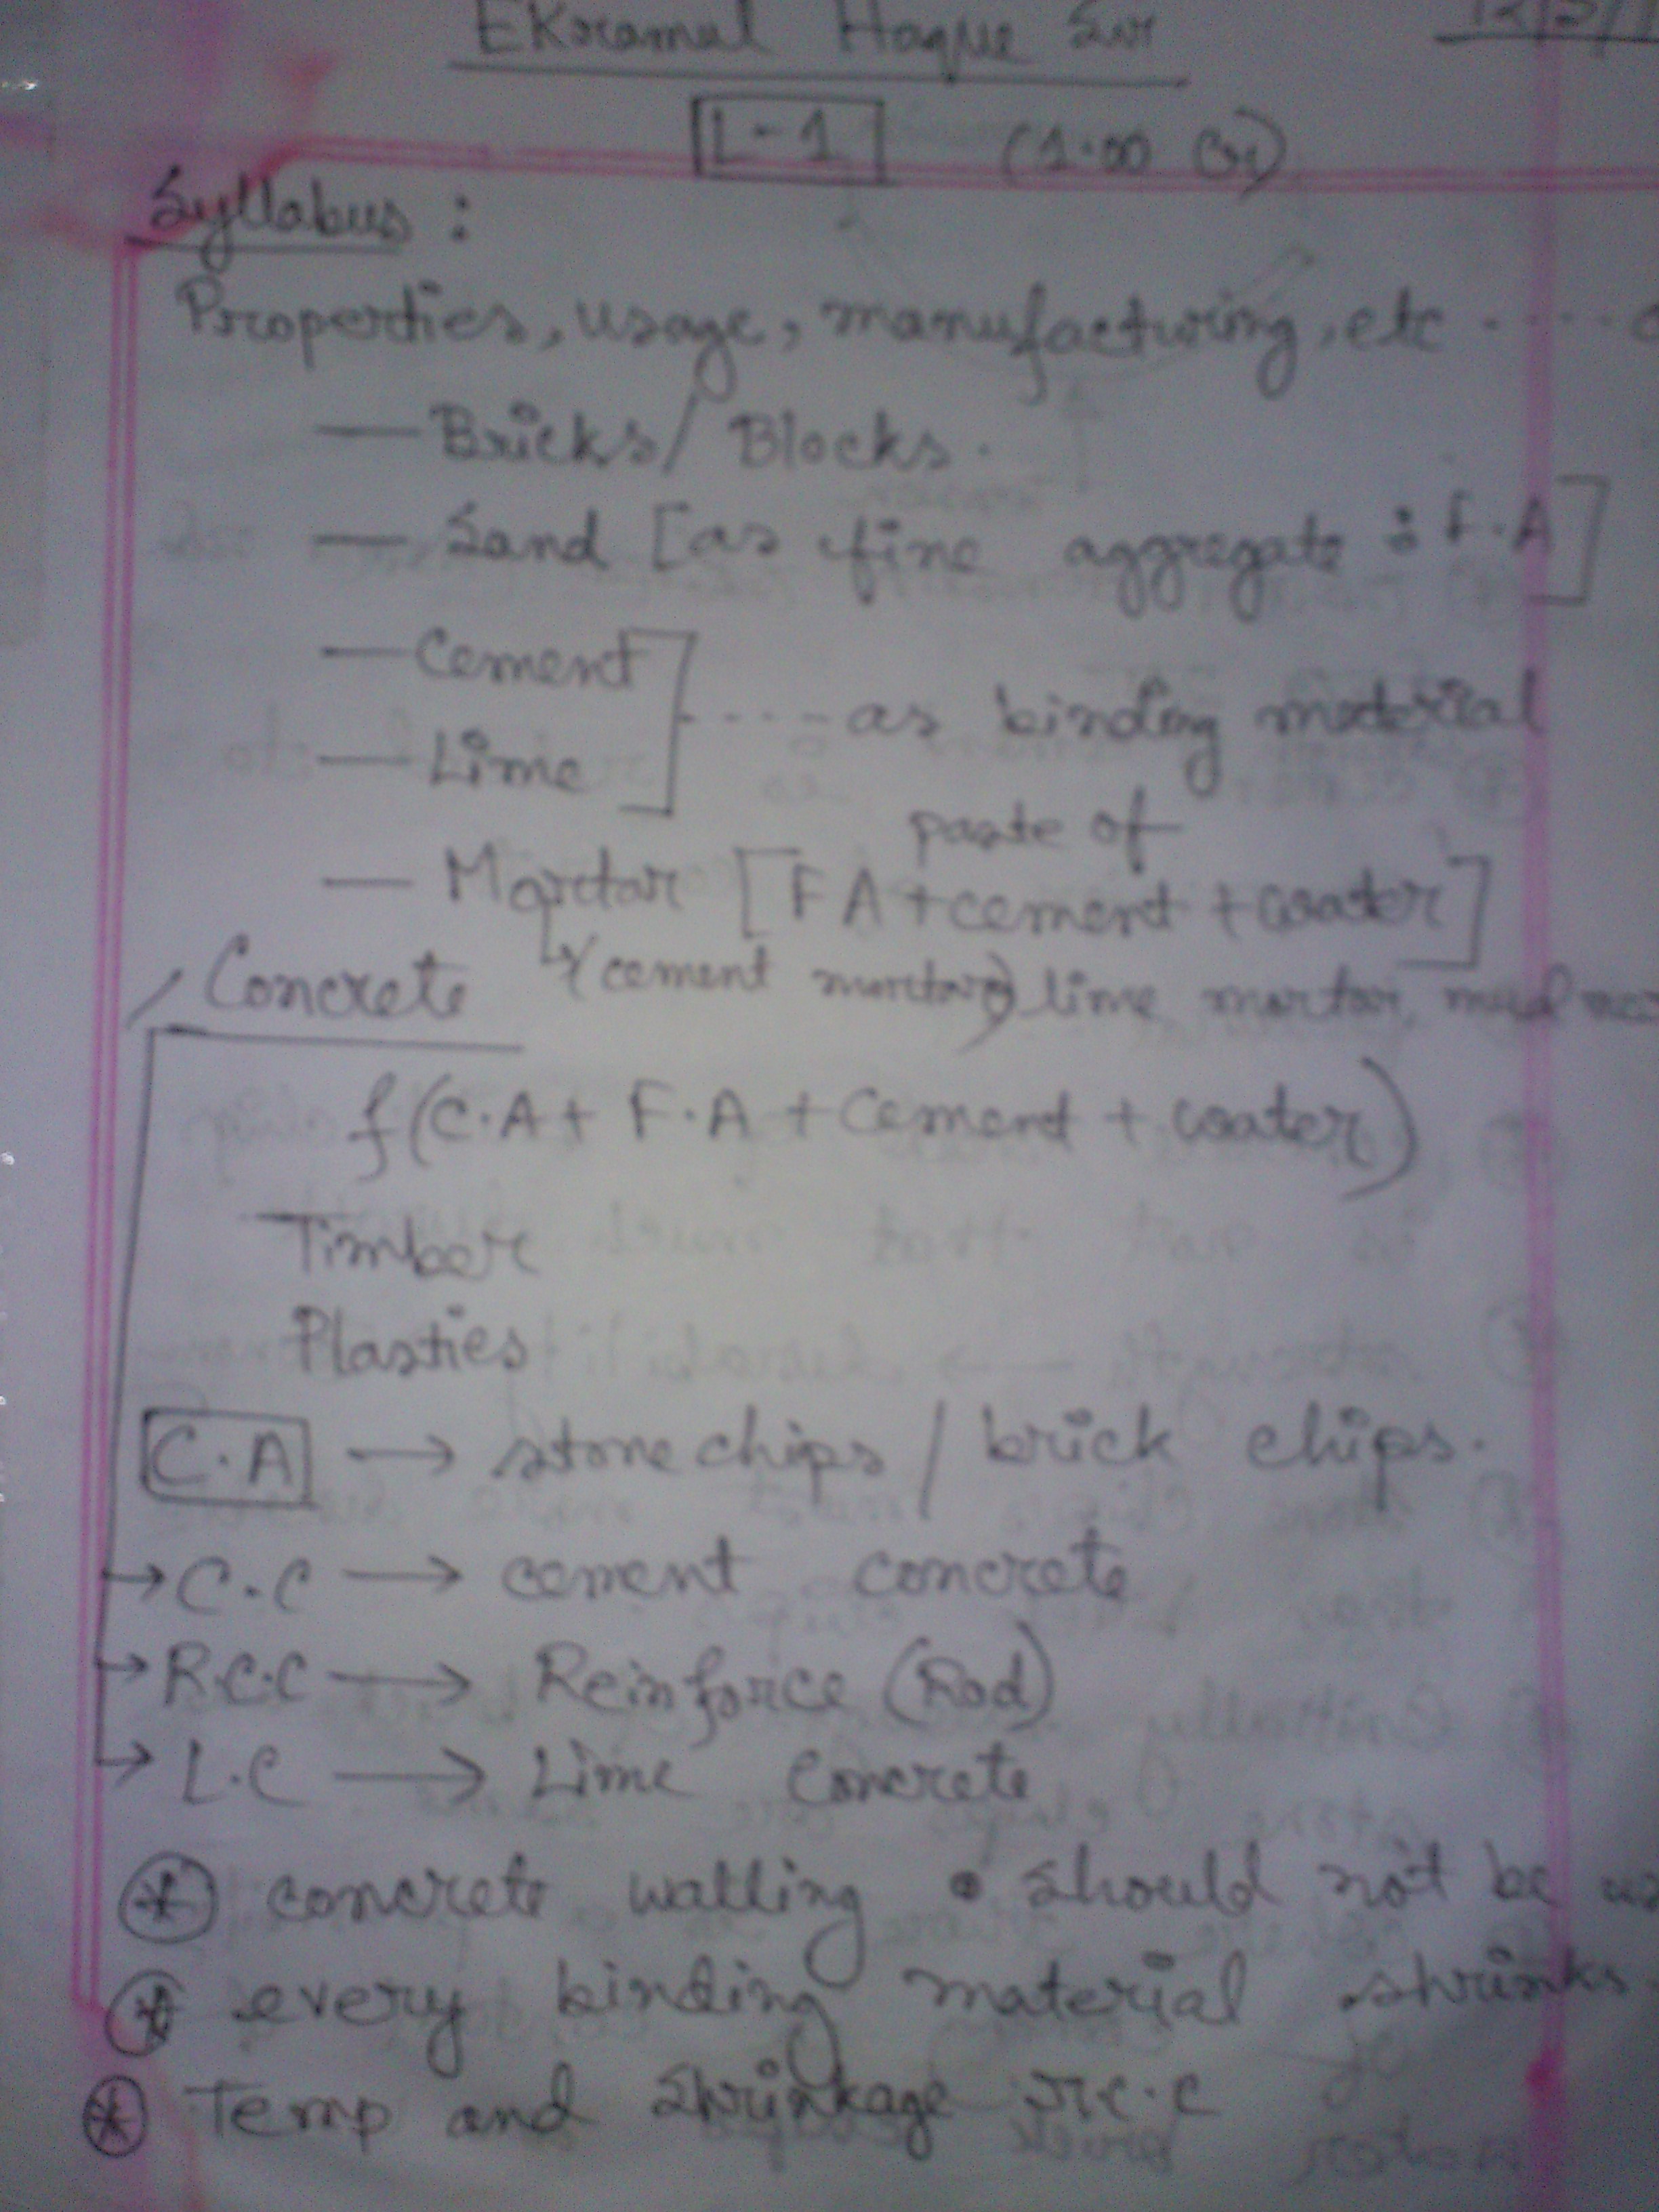 Ekramul Haque Sir
L-1 (1.00 Cr)
Syllabus :
Properties, usage, manufacturing, etc .....
— Bricks/ Blocks.
— Sand [as fine aggregate : F.A]
— Cement
---- as binding material
— Lime
paste of
— Mortar [FA + cement + water]
(cement mortar) lime mortar, mud
Concrete
f(C.A + F.A + Cement + water)
Timber
Plastics
C.A → stone chips / brick chips.
→ C.C → cement concrete
→ R.C.C → Reinforce (Rod)
→ L.C → Lime Concrete
* concrete walling should not be
* every binding material shrinks.
* Temp and shrinkage